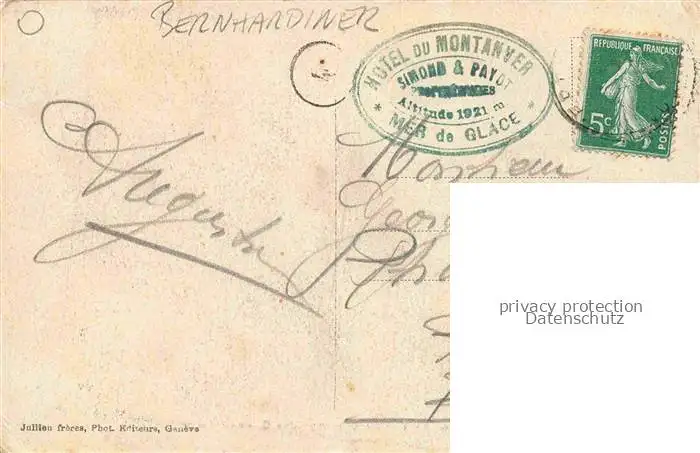 BERNHARDINER
HOTEL DU MONTANVER
SIMOND & PAYOT
Altitude 1921 m
* MER de GLACE *
REPUBLIQUE FRANÇAISE
5c
POSTES
4
Auguste
Monsieur
privacy protection
Datenschutz
Jullien frères, Phot. Editeurs, Genève